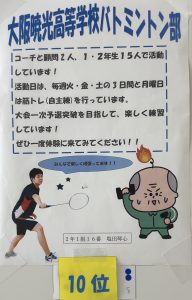 大阪暁光高等学校バドミントン部
コーチと顧問2人、1・2年生15人で活動
しています！
活動日は、毎週火・金・土の3日間と月曜日
は筋トレ(自主練)を行っています。
大会一次予選突破を目指して、楽しく練習
しています！
ぜひ一度体験に来てみてください！！
みんなで楽しく頑張ってます！！
2年1組16番 塩田琴心
10位